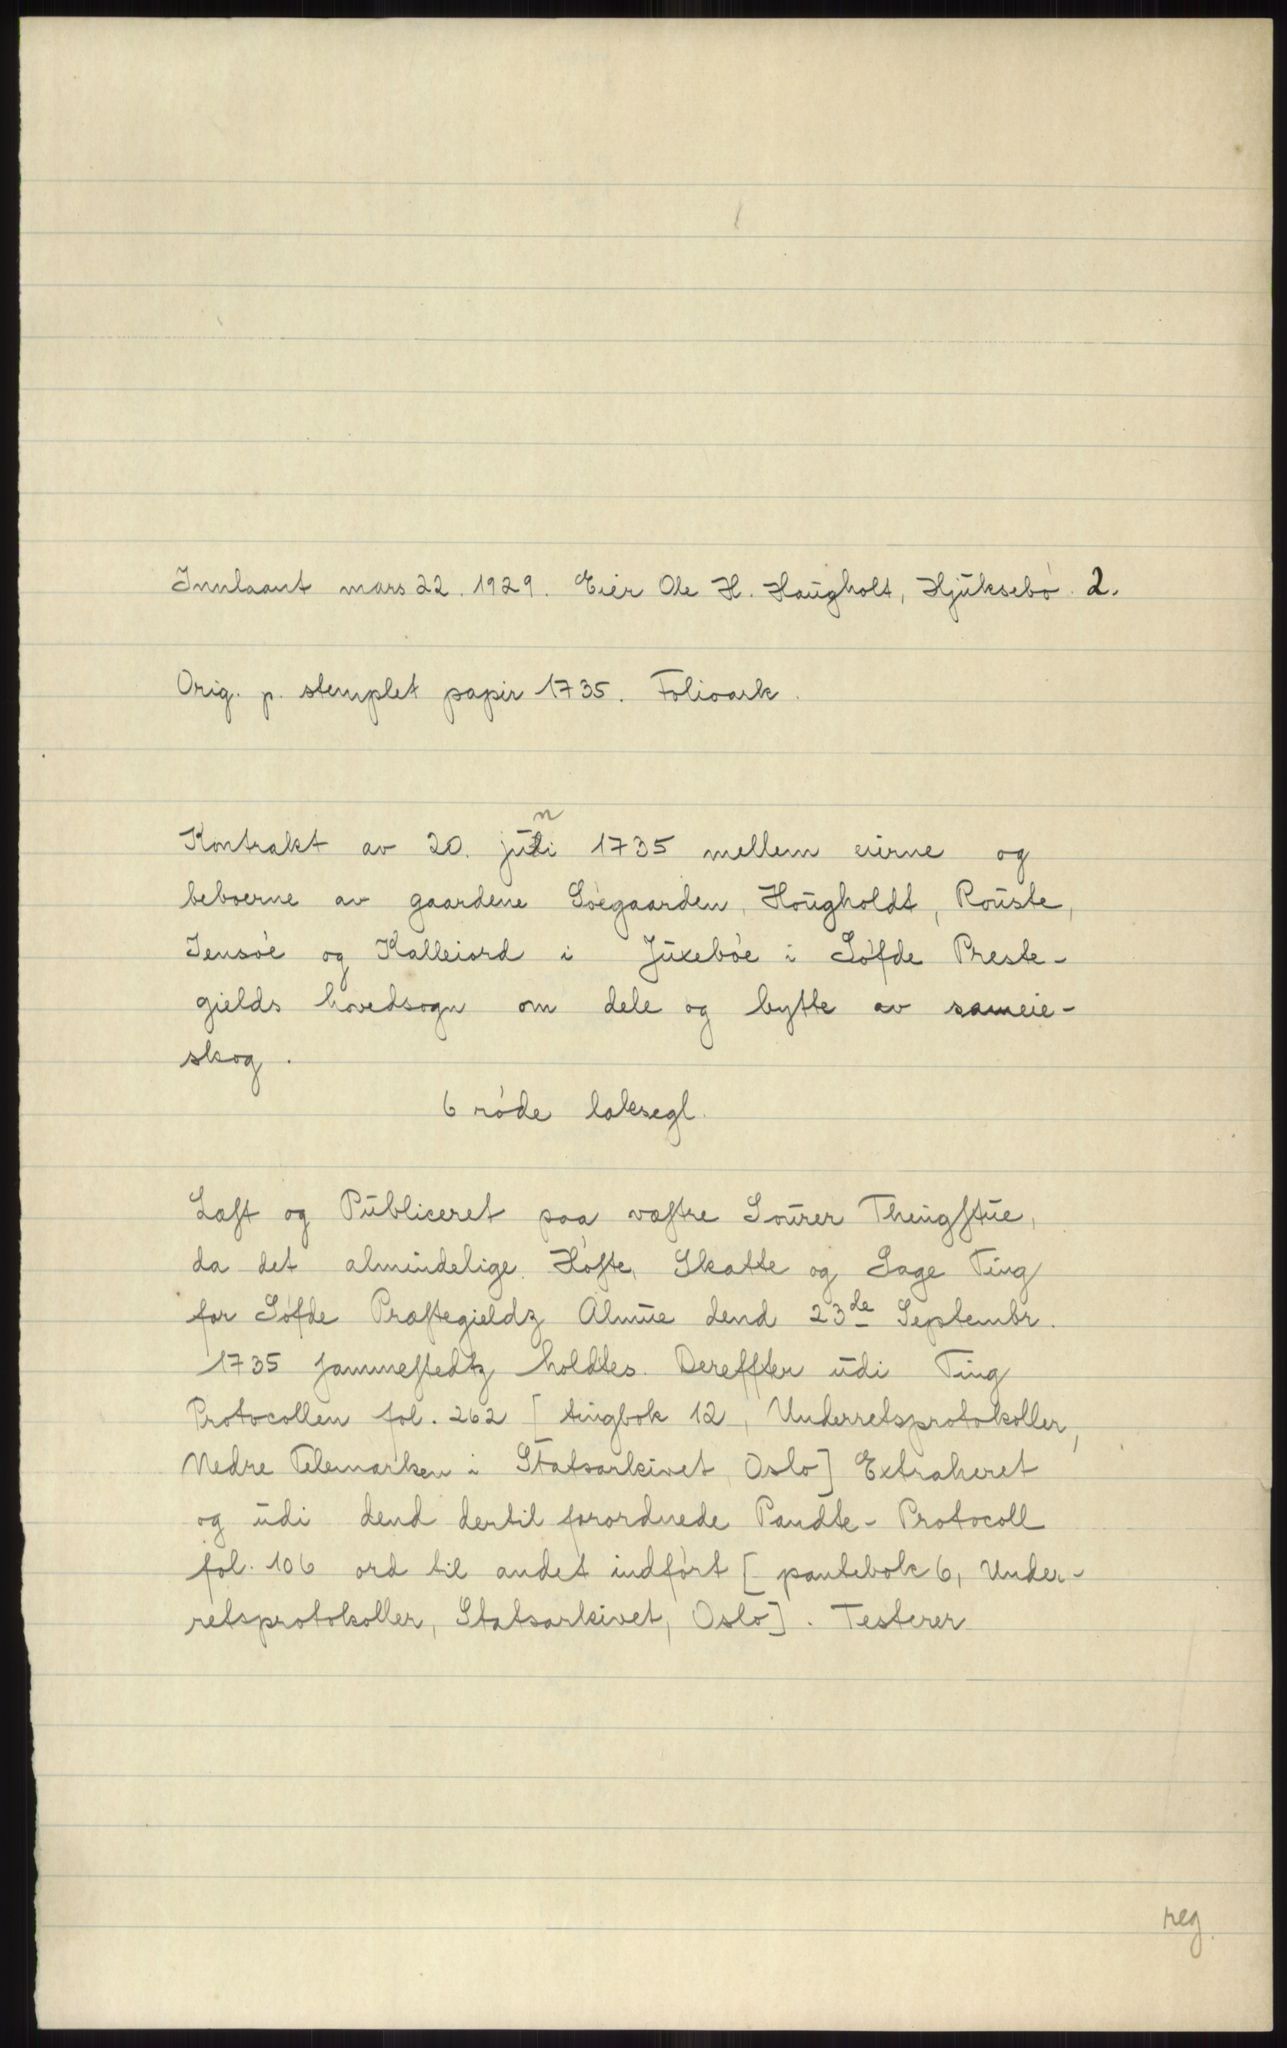 Innlaant mars 22. 1929. Eier Ole H. Haugholt, Hjuksebø. 2.
Orig. p. stemplet papir 1735. Folioark.
Kontrakt av 20. juni 1735 mellem eierne og
beboerne av gaardene Søegaarden, Hougholdt, Rouste,
Jensøe og Kalleiord i Juxebøe i Søfde Preste-
gields hovedsogn om dele og bytte av sameie-
skog.
6 røde laksegl.
Læst og Publiceret paa væstre Sourer Thengstue,
da det almindelige Høste, Skatte og Sage Ting
for Søfde Præstegieldz Almue dend 23de Septembr.
1735 sammestedtz holdtes. Dereffter udi Ting
Protocollen fol. 262 [tingbok 12, Underretsprotokoller,
Nedre Telemarken i Statsarkivet, Oslo] Extraheret
og udi dend dertil forordnede Pandte-Protocoll
fol. 106 ord til andet indført [pantebok 6, Under-
retsprotokoller, Statsarkivet, Oslo]. Testerer
reg.